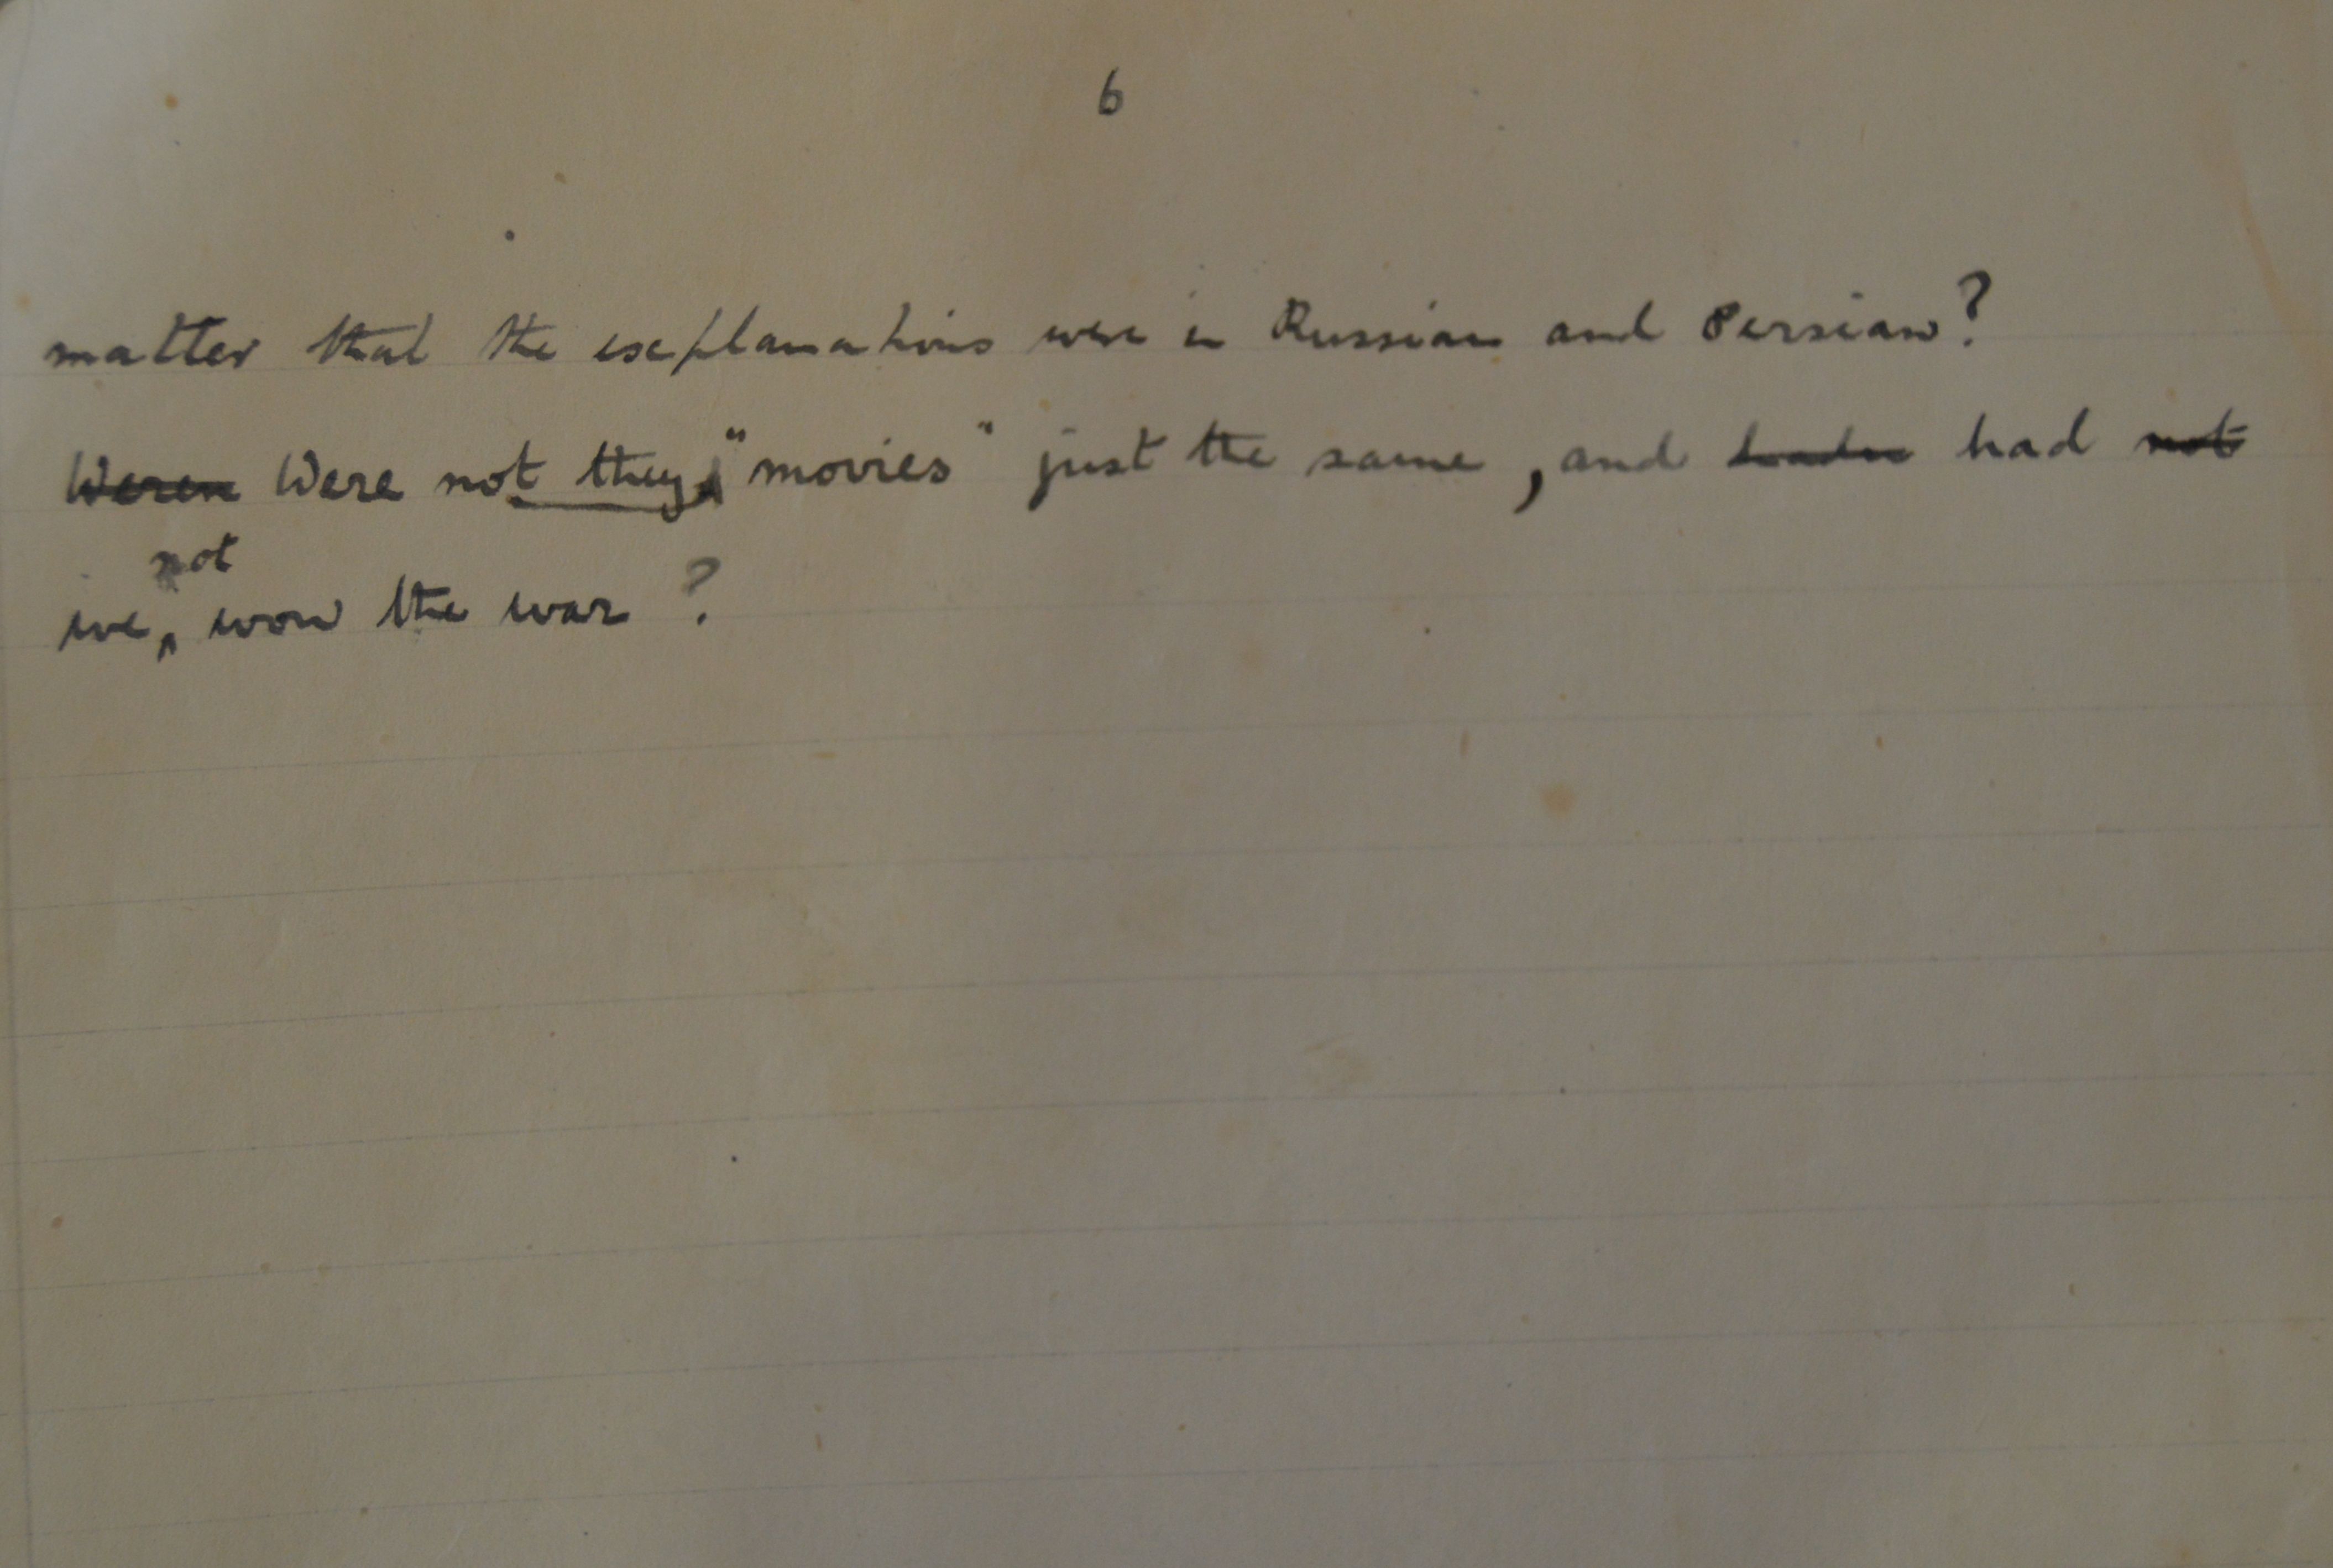 6
matter that the explanations were in Russian and Persian?
Were not they "movies" just the same, and had not
not
we, won the war?